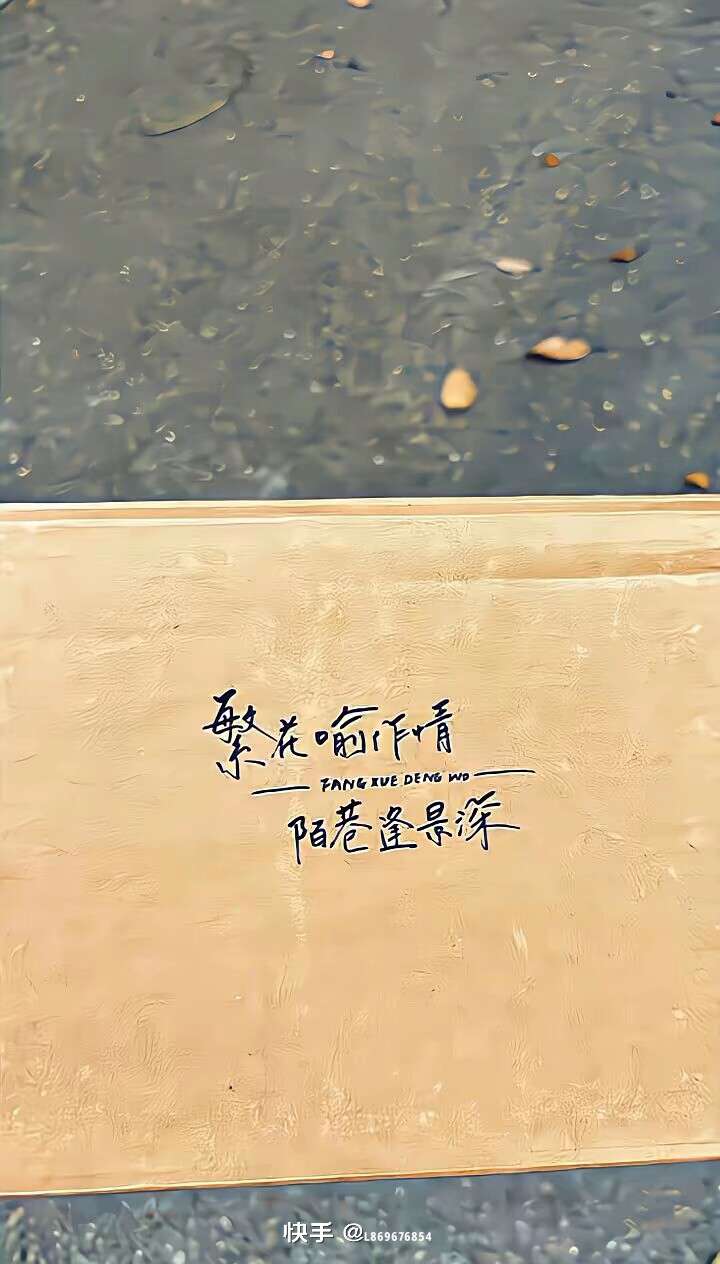 繁花喻作情
FANG XUE DENG WO
陌巷逢景深
快手 @L869676854